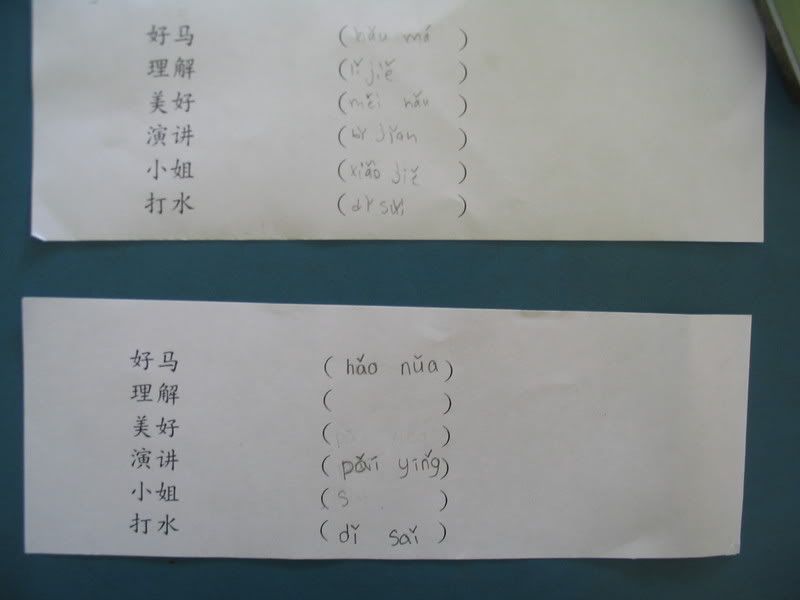 好马 (hǎu má)
理解 (lǐ jiě)
美好 (měi hǎu)
演讲 ( jiǎn)
小姐 (xiǎo jiě)
打水 (dǐ )
好马 (hǎo nǔa)
理解 ( )
美好 ( )
演讲 (pǎi yǐng)
小姐 (s )
打水 (dǐ sǎi)